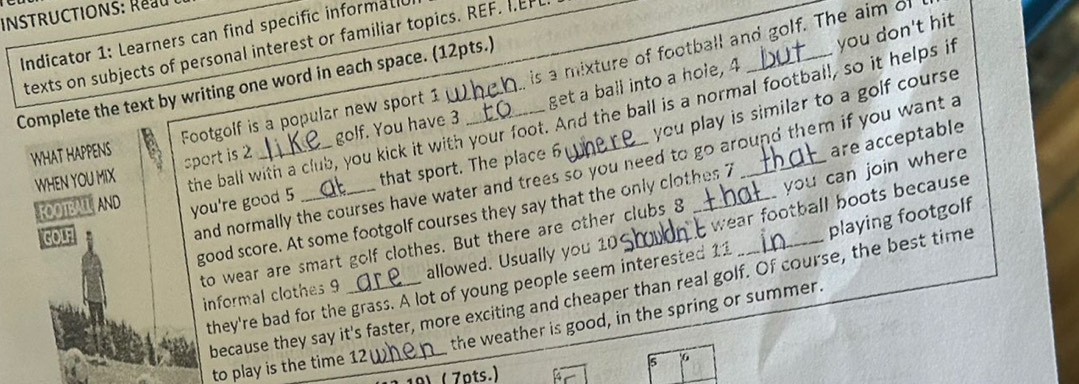 INSTRUCTIONS: Read
Indicator 1: Learners can find specific
texts on subjects of personal interest or familiar topics. REF.
Complete the text by writing one word in each space. (12pts.)
WHAT HAPPENS
WHEN YOU MIX
FOOTBALL AND
GOLF?
Footgolf is a popular new sport 1 when is a mixture of football and golf. The aim of
sport is 2 like golf. You have 3 to get a ball into a hole, 4 but you don't hit
the ball with a club, you kick it with your foot. And the ball is a normal football, so it helps if
you're good 5 at that sport. The place 6 where you play is similar to a golf course
and normally the courses have water and trees so you need to go around them if you want a
good score. At some footgolf courses they say that the only clothes 7 that are acceptable
to wear are smart golf clothes. But there are other clubs 8 that you can join where
informal clothes 9 are allowed. Usually you 10 shouldn't wear football boots because
they're bad for the grass. A lot of young people seem interested 11 in playing footgolf
because they say it's faster, more exciting and cheaper than real golf. Of course, the best time
to play is the time 12 when the weather is good, in the spring or summer.
(7pts.)
5
6